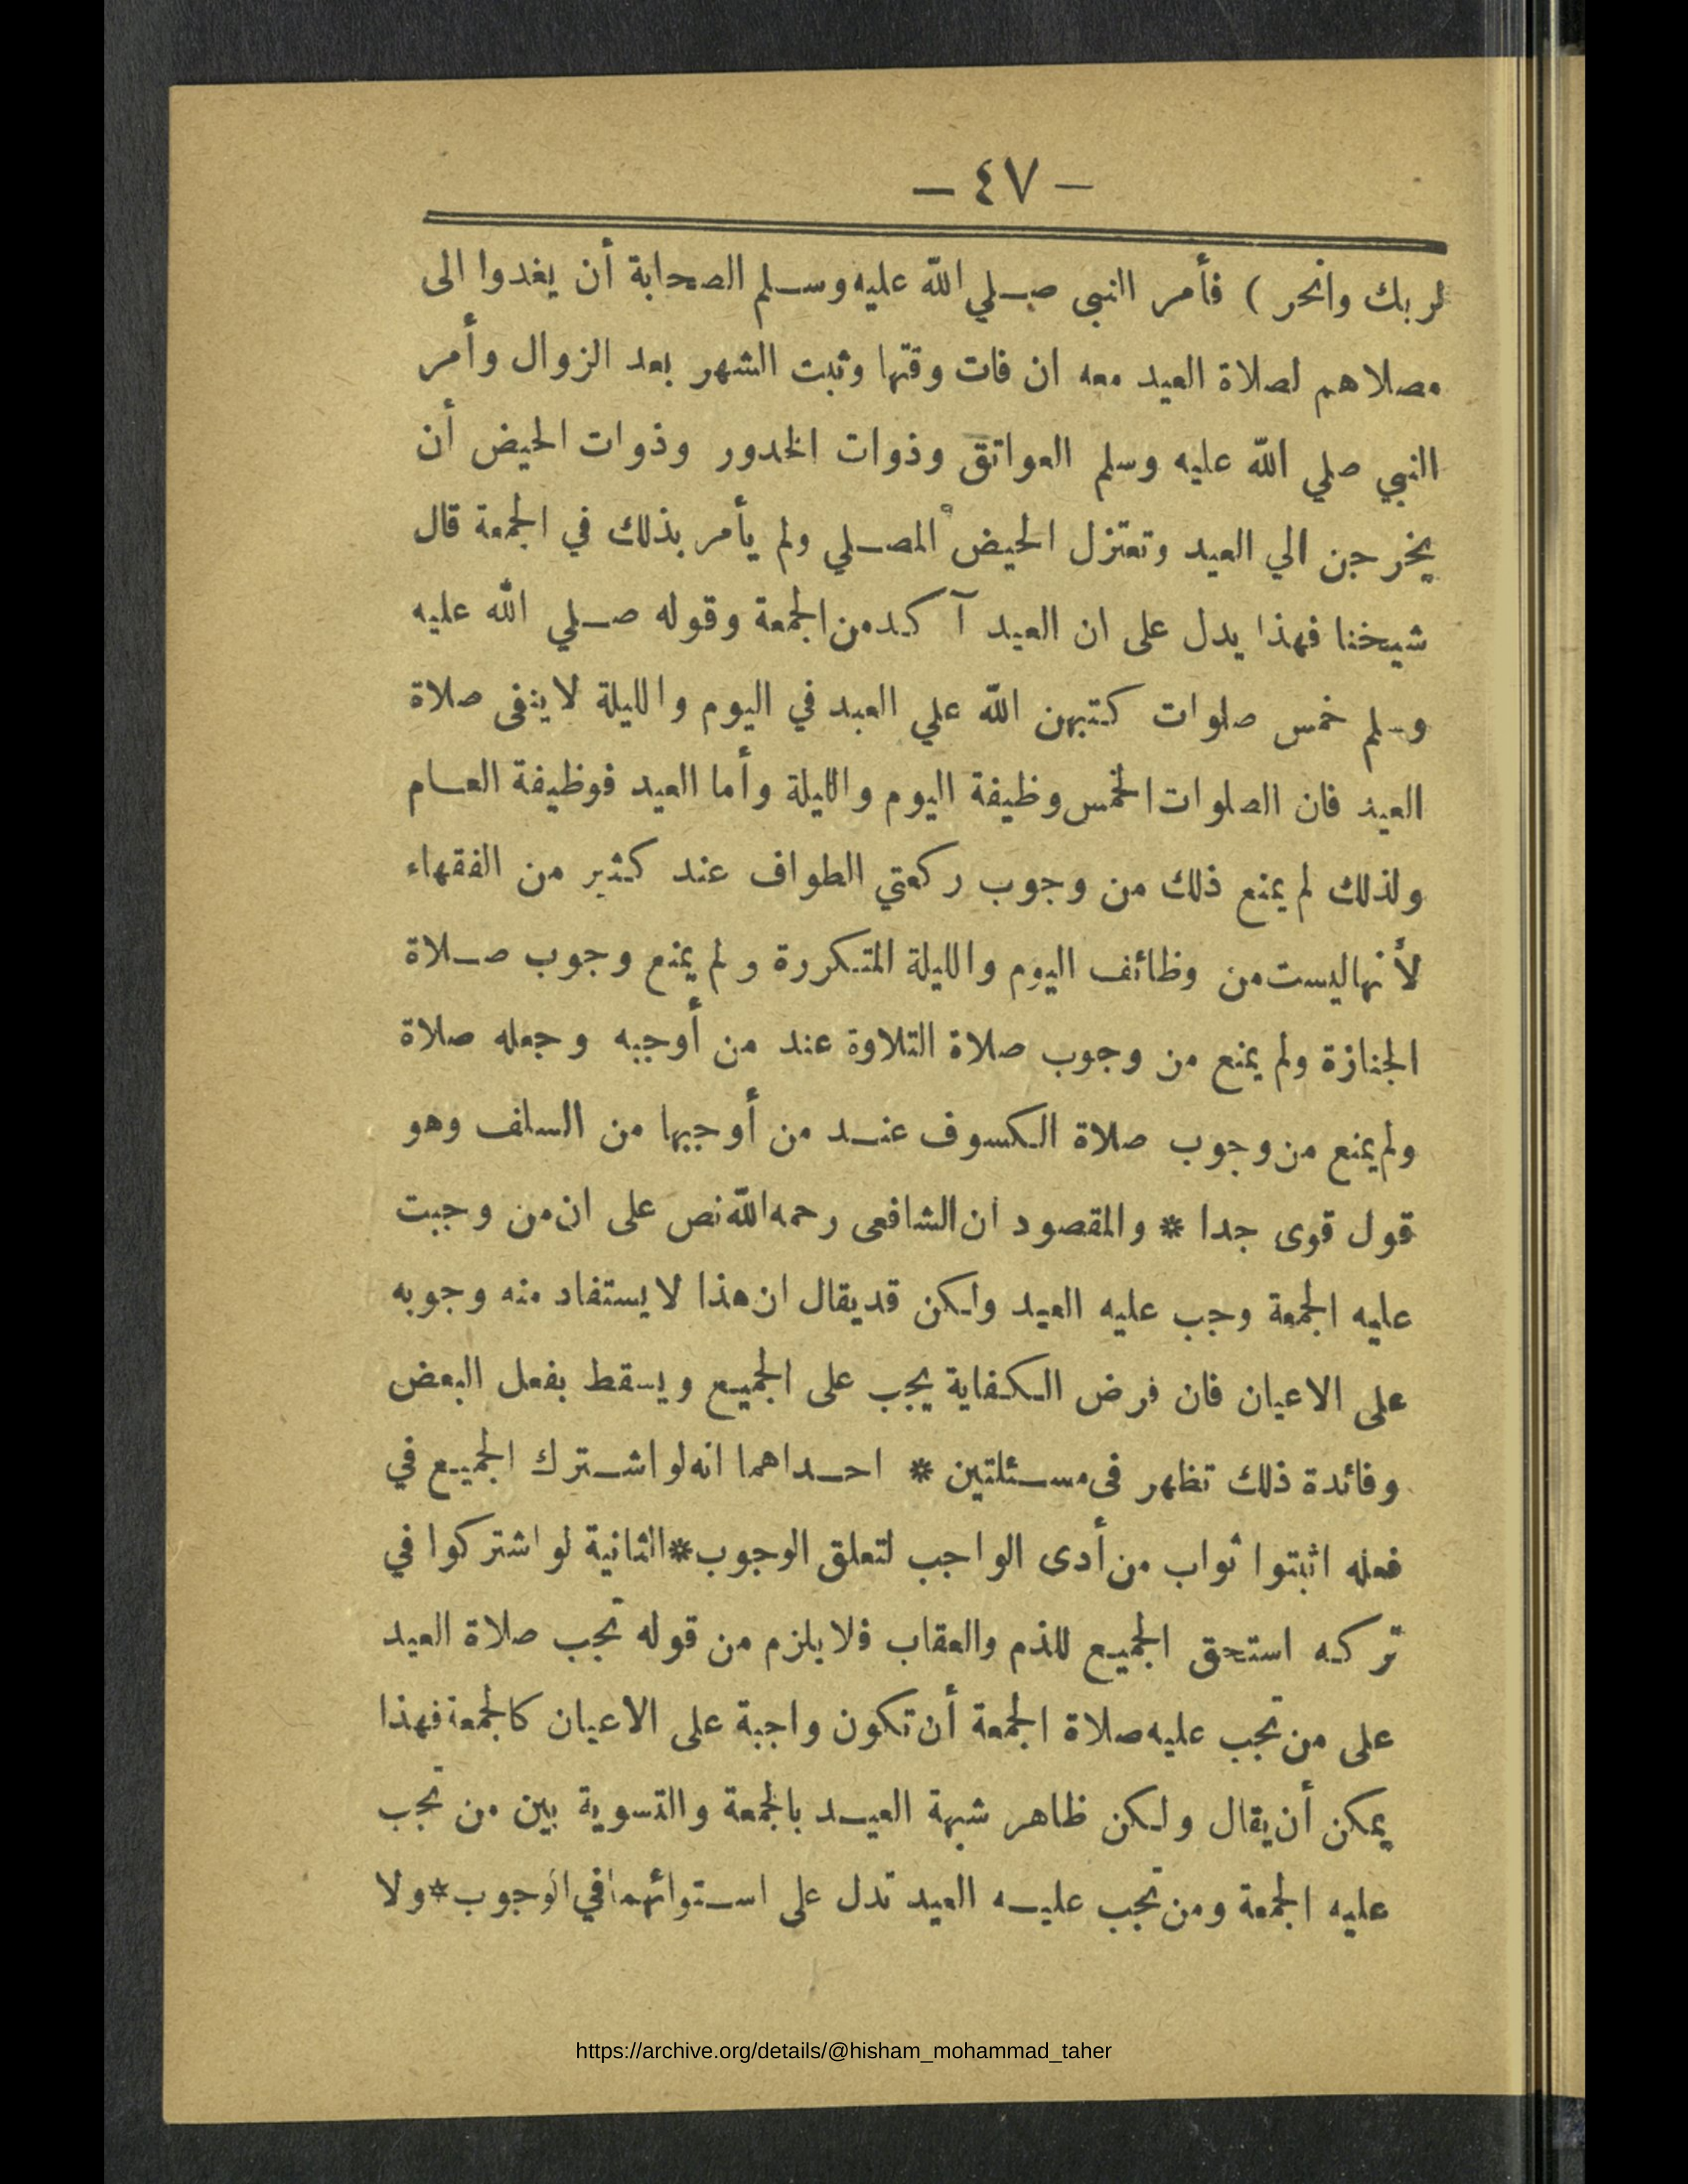 — ٤٧ —
لربك وانحر ) فأمر النبى صلي الله عليه وسلم الصحابة أن يغدوا الى
مصلاهم لصلاة العيد معه ان فات وقتها وثبت الشهر بعد الزوال وأمر
النبي صلي الله عليه وسلم العواتق وذوات الخدور وذوات الحيض أن
يخرجن الي العيد وتعتزل الحيض المصلي ولم يأمر بذلك في الجمعة قال
شيخنا فهذا يدل على ان العيد آكد من الجمعة وقوله صلي الله عليه
وسلم خمس صلوات كتبهن الله علي العبد في اليوم والليلة لاينفى صلاة
العيد فان الصلوات الخمس وظيفة اليوم والليلة وأما العيد فوظيفة العام
ولذلك لم يمنع ذلك من وجوب ركعتي الطواف عند كثير من الفقهاء
لأنها ليست من وظائف اليوم والليلة المتكررة ولم يمنع وجوب صلاة
الجنازة ولم يمنع من وجوب صلاة التلاوة عند من أوجبه وجعله صلاة
ولم يمنع من وجوب صلاة الكسوف عند من أوجبها من السلف وهو
قول قوى جدا * والمقصود ان الشافعى رحمه الله نص على ان من وجبت
عليه الجمعة وجب عليه العيد ولكن قد يقال ان هذا لايستفاد منه وجوبه
على الاعيان فان فرض الكفاية يجب على الجميع ويسقط بفعل البعض
وفائدة ذلك تظهر فى مسئلتين * احداهما انه لو اشترك الجميع في
فعله اثبتوا ثواب من أدى الواجب لتعلق الوجوب * الثانية لو اشتركوا في
تركه استحق الجميع للذم والعقاب فلا يلزم من قوله تجب صلاة العيد
على من تجب عليه صلاة الجمعة أن تكون واجبة على الاعيان كالجمعة فهذا
يمكن أن يقال ولكن ظاهر شبهة العيد بالجمعة والتسوية بين من تجب
عليه الجمعة ومن تجب عليه العيد تدل على استوائهما في الوجوب * ولا
https://archive.org/details/@hisham_mohammad_taher